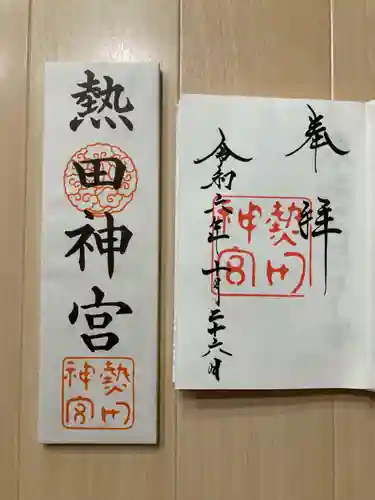 熱田神宮
熱田
神宮
奉拝
熱田
神宮
令和六年十月二十六日